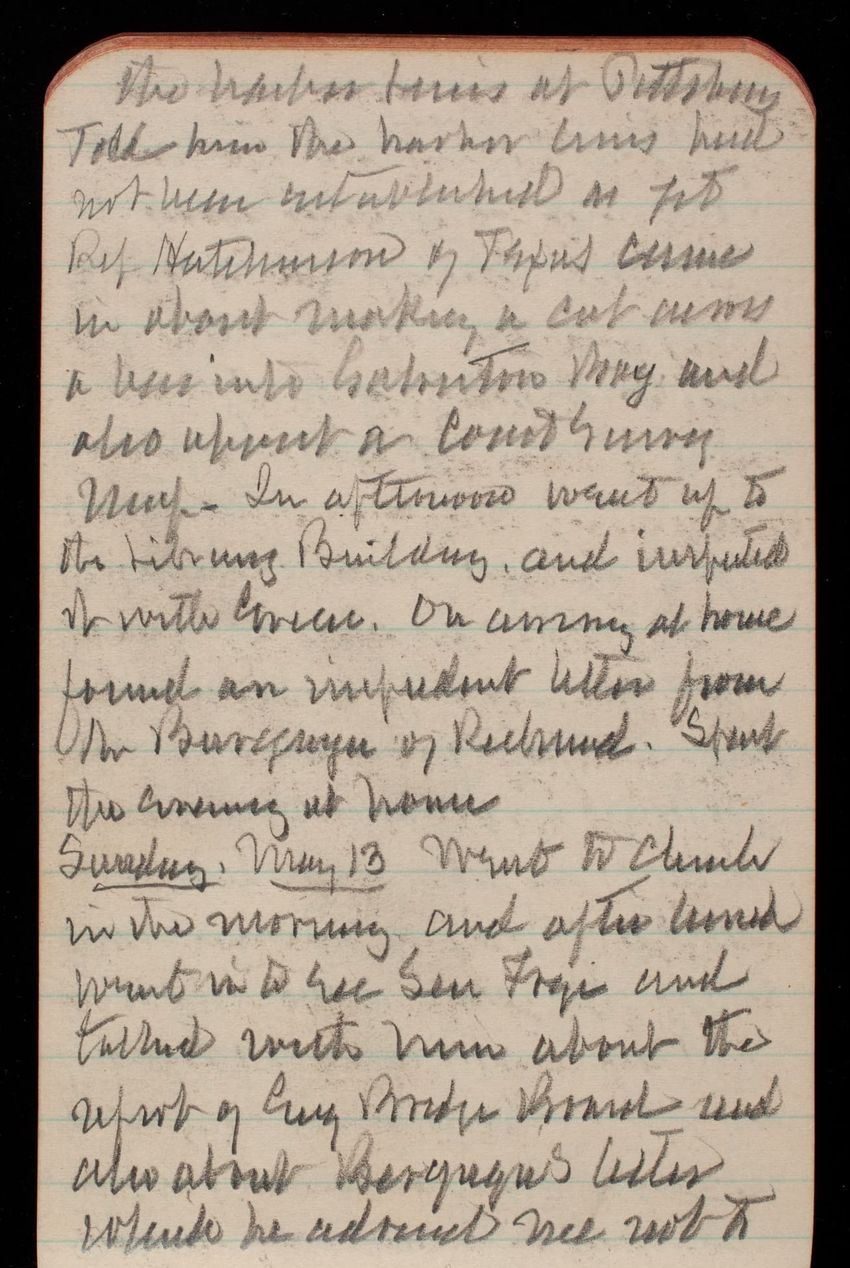 the harbor lines at Pittsburg
Told him the harbor lines had
not been established as yet
Rep Hutchinson of Texas came
in about making a cut across
a bar into Galveston Bay and
also about a Coast Survey
Map - In afternoon went up to
the Library Building, and inspected
it with Green. On arriving at home
found an impudent letter from
the of Richmond. Spent
the evening at home
Sunday, May 13 Went to Church
in the morning and after lunch
went in to see Gen and
talked with him about the
report of Eng Bridge Board and
also about letter
which he advised me not to